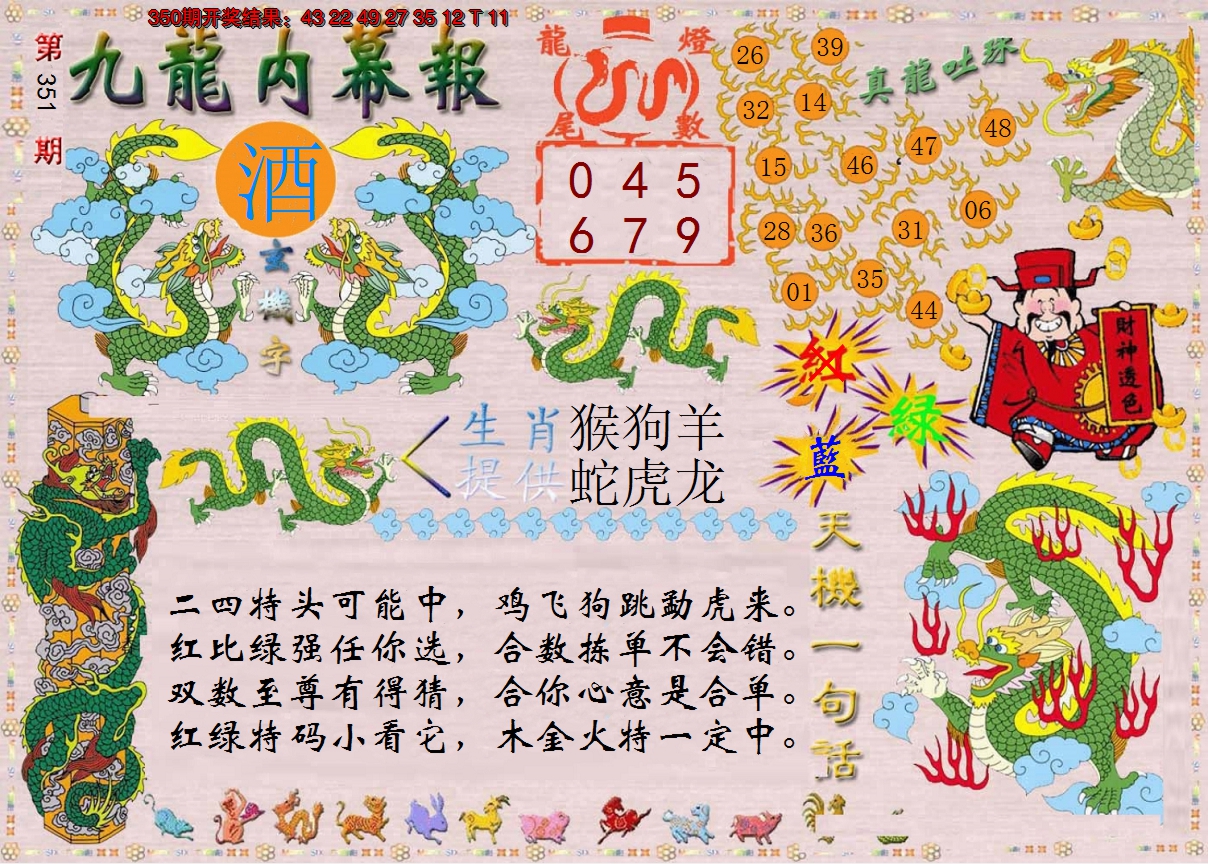 350期开奖结果：43 22 49 27 35 12 T 11
第351期
九龍内幕報
酒
玄機字
龍燈
尾數
0 4 5
6 7 9
真龍吐珠
26 39
32 14
47 48
15 46
06
28 36 31
35
01 44
財神透色
紅
緑
藍
生肖 猴狗羊
提供 蛇虎龙
天機一句話
二四特头可能中，鸡飞狗跳勐虎来。
红比绿强任你选，合数拣单不会错。
双数至尊有得猜，合你心意是合单。
红绿特码小看它，木金火特一定中。